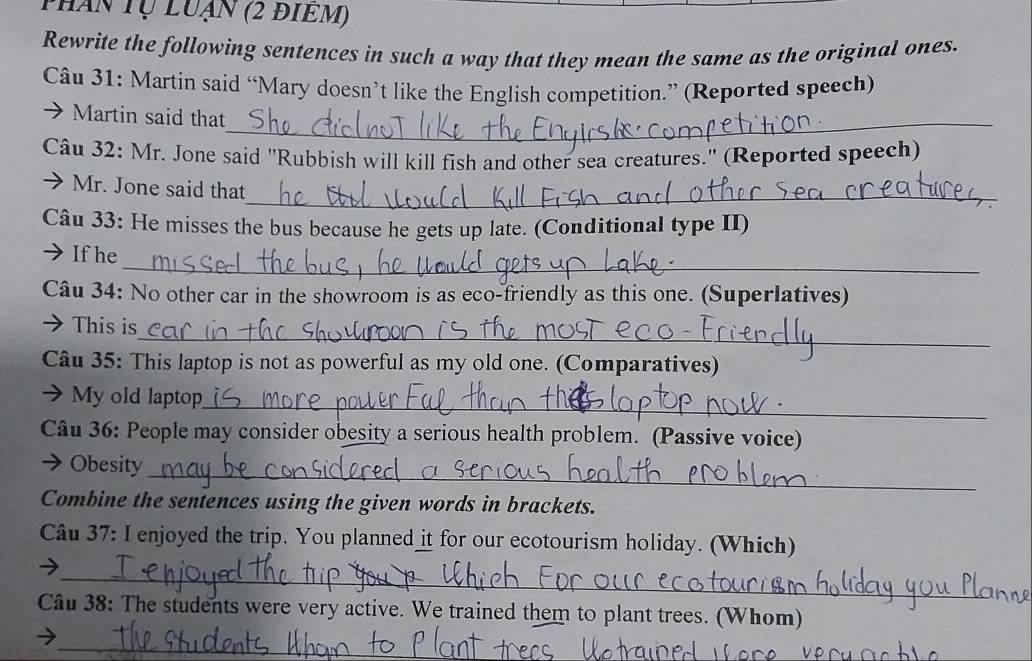 PHẦN TỰ LUẬN (2 ĐIỂM)
Rewrite the following sentences in such a way that they mean the same as the original ones.
Câu 31: Martin said “Mary doesn’t like the English competition.” (Reported speech)
→ Martin said that She did not like the English competition.
Câu 32: Mr. Jone said "Rubbish will kill fish and other sea creatures." (Reported speech)
→ Mr. Jone said that he would kill Fish and other sea creatures.
Câu 33: He misses the bus because he gets up late. (Conditional type II)
→ If he missed the bus, he would gets up Lake.
Câu 34: No other car in the showroom is as eco-friendly as this one. (Superlatives)
→ This is car in the showroon is the most eco-Friendly
Câu 35: This laptop is not as powerful as my old one. (Comparatives)
→ My old laptop is more power Ful than this laptop now.
Câu 36: People may consider obesity a serious health problem. (Passive voice)
→ Obesity may be considered a serious health problem.
Combine the sentences using the given words in brackets.
Câu 37: I enjoyed the trip. You planned it for our ecotourism holiday. (Which)
→ I enjoyed the trip which For our ecotourism holiday you Planne
Câu 38: The students were very active. We trained them to plant trees. (Whom)
→ the students Whom to Plant trees We trained were very